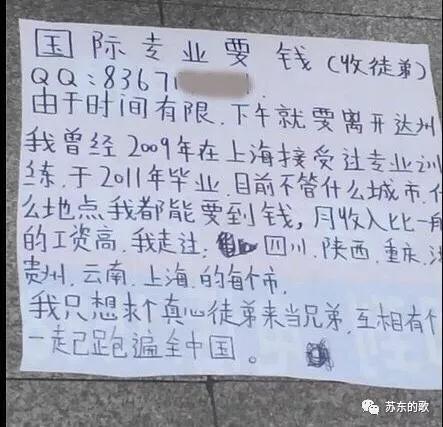 国际专业要钱(收徒弟)
QQ:8367
由于时间有限.下午就要离开达州
我曾经2009年在上海接受过专业训
练.于2011年毕业.目前不管什么城市.什
么地点我都能要到钱,月收入比一般
的工资高.我走过. 四川.陕西.重庆.
贵州.云南.上海.的每个市.
我只想求个真心徒弟来当兄弟.互相有个
一起己跑遍全中国。
苏东的歌